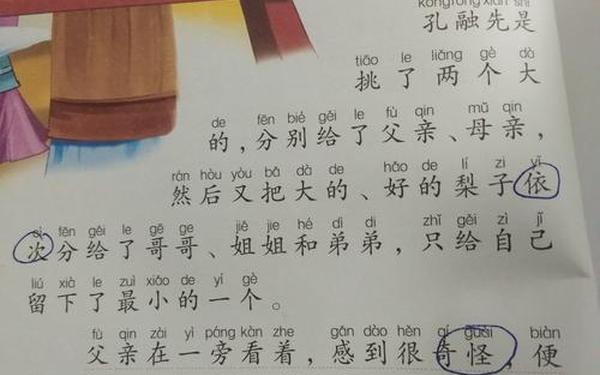 kǒng róng xiān shì
孔融先是
tiāo le liǎng gè dà
挑了两个大
de fēn bié gěi le fù qin mǔ qin
的，分别给了父亲、母亲，
rán hòu yòu bǎ dà de hǎo de lí zi yī
然后又把大的、好的梨子依
cì fēn gěi le gē ge jiě jie hé dì di zhǐ gěi zì jǐ
次分给了哥哥、姐姐和弟弟，只给自己
liú xià le zuì xiǎo de yí gè
留下了最小的一个。
fù qin zài yì páng kàn zhe gǎn dào hěn qí guài biàn
父亲在一旁看着，感到很奇怪，便